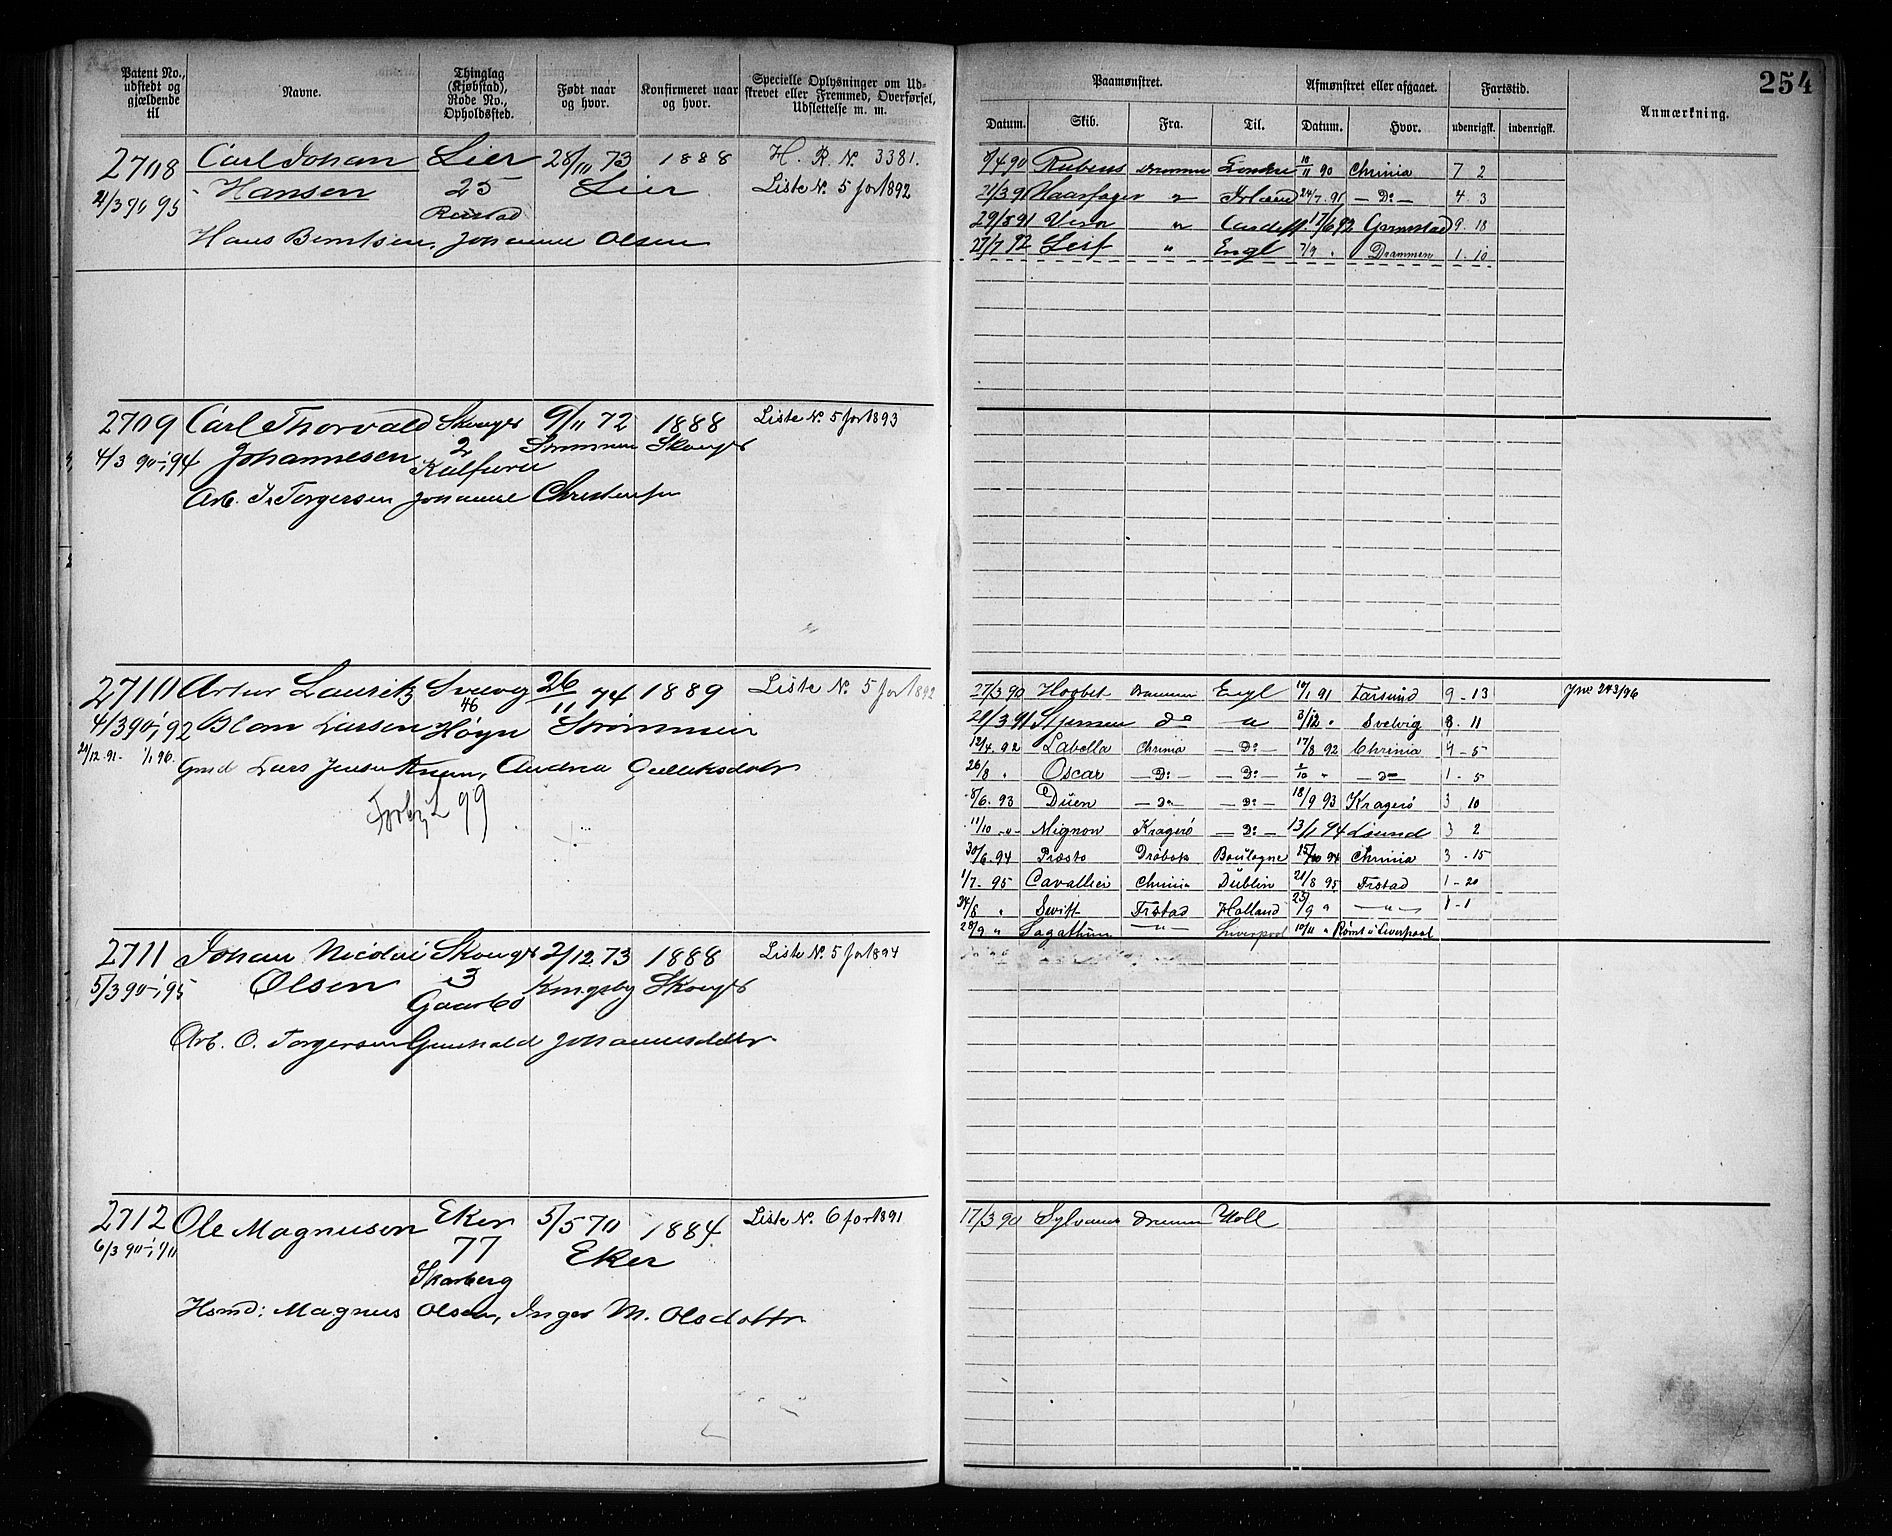 254
Patent No., udstedt og gjældende til
Navne.
Thinglag (Kjøbstad), Rode No., Opholdssted.
Født naar og hvor.
Konfirmeret naar og hvor.
Specielle Oplysninger om Udskrevet eller Fremmed, Overførsel, Udslettelse m. m.
Paamønstret.
Afmønstret eller afgaaet.
Fartstid.
Anmærkning.
Datum. Skib. Fra. Til. Datum. Hvor. udenrigsk. indenrigsk.
2708 Carl Johan Lier 28/11 73 1888 H. R. No. 3381.
Hansen 25 Lier Liste No. 5 for 1892
Hans Berntsen, Johanne Olsen
90 Rubens Drammen London 10/11 90 Chrinia 7 2
21/3 91 Haarfager 24/7. 91 — Do — 4 3
29/8 91 Cardiff 17/6 92 9. 18
27/7 92 Leif " Engl 7/9 " Drammen 1. 10
2709 Carl Thorvald Skouger 9/11 72 1888 Liste No. 5 for 1893
4/3 90-, 94 Johannesen 2 Strømmen Skouger
Arb. Torgersen Johanne
2710 Artur Lauritz Svelvig 26/11 74 1889 Liste No. 5 for 1892
4/3 90-, 92 Blom Larsen 46 Høyn Strømmen
Lars Jensen
99
27/3 90 Haabet Drammen Engl /1 91 Farsund 9 - 13 243/96
Do 3/12 " Svelvig 8. 11
12/4. 92 Labella Chrinia — Do — 17/8 92 Chrinia 4 - 5
26/8 " Oscar — Do — — Do — 2/10 " — Do 1 - 5
8/6. 93 Duen — Do — Do — 18/9 93 Kragerø 3 10
11/10 - " - Mignon Kragerø — Do — 13/1 94 3 2
30/6. 94 Præsto Drøbak Boulogne 15/10 94 Chrinia 3 - 15
1/7. 95 Cavallier Chrinia Dublin 21/8 95 Frstad 1 - 20
24/8 " Swift Frstad Holland 23/9 " — " — 1 - 1
28/9 " — " — Liverpool 10/11 " Rømt i Liverpool
2711 Johan Nicolai Skouger 2/12 73 1888 Liste No. 5 for 1894
5/3 90-, 95 Olsen 3 Kongsby Skouger
Arb. O. Torgersen Johannesdatter
2712 Ole Magnusen Eker 5/5 70 1884 Liste No. 6 for 1891
6/3 90 77 Eker
Skarberg
Hsmd: Magnus Olsen, Inger M. Olsdattr
17/3 90 Sylvanus Drammen Holl